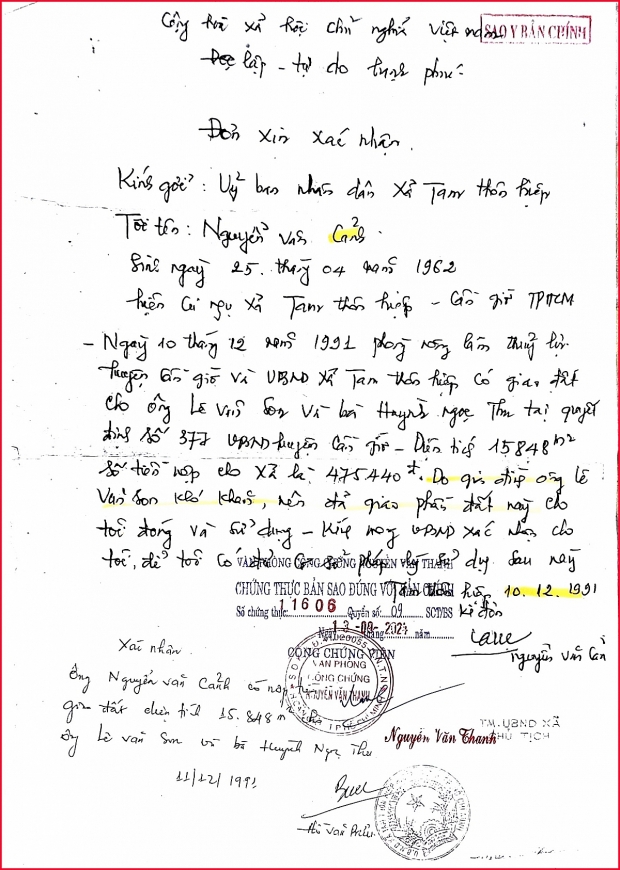 Cộng hoà xã hội chủ nghĩa việt nam
SAO Y BẢN CHÍNH
Độc lập - tự do hạnh phúc
Đơn xin xác nhận.
Kính gởi: Uỷ ban nhân dân xã Tam thôn hiệp
Tôi tên: Nguyễn văn Cảnh.
Sinh ngày 25. tháng 04 năm 1962
hiện cư ngụ xã Tam thôn hiệp - Cần giờ TPHCM
- Ngày 10 tháng 12 năm 1991 phòng nông lâm thuỷ lợi
huyện Cần giờ và UBND xã Tam thôn hiệp có giao đất
cho ông Lê văn Sơn và bà Huỳnh ngọc Thu tại quyết
định số 377 UBND huyện Cần giờ - Diện tích 15848 m2
số tiền nộp cho xã là 475440 đ. Do gia đình ông lê
Văn Sơn khó khăn, nên đã giao phần đất này cho
tôi đóng và sử dụng - Kính mong UBND xác nhận cho
tôi, để tôi có cơ sở pháp lý sử dụng sau này
VĂN PHÒNG CÔNG CHỨNG NGUYỄN VĂN THANH
CHỨNG THỰC BẢN SAO ĐÚNG VỚI BẢN CHÍNH
Tam thôn hiệp 10.12.1991
Số chứng thực: 11606 Quyển số: 09 SCT/BS
Kí đơn
Ngày 13-09-2024 tháng năm
CÔNG CHỨNG VIÊN
VĂN PHÒNG
CÔNG CHỨNG
NGUYỄN VĂN THANH
Nguyễn Văn Cảnh
Xác nhận
Ông Nguyễn văn Cảnh có nộp
giao đất diện tích 15.848 m
ông Lê văn Sơn và bà Huỳnh Ngọc Thu
Nguyễn Văn Thanh
TM. UBND XÃ
CHỦ TỊCH
11/12/1991